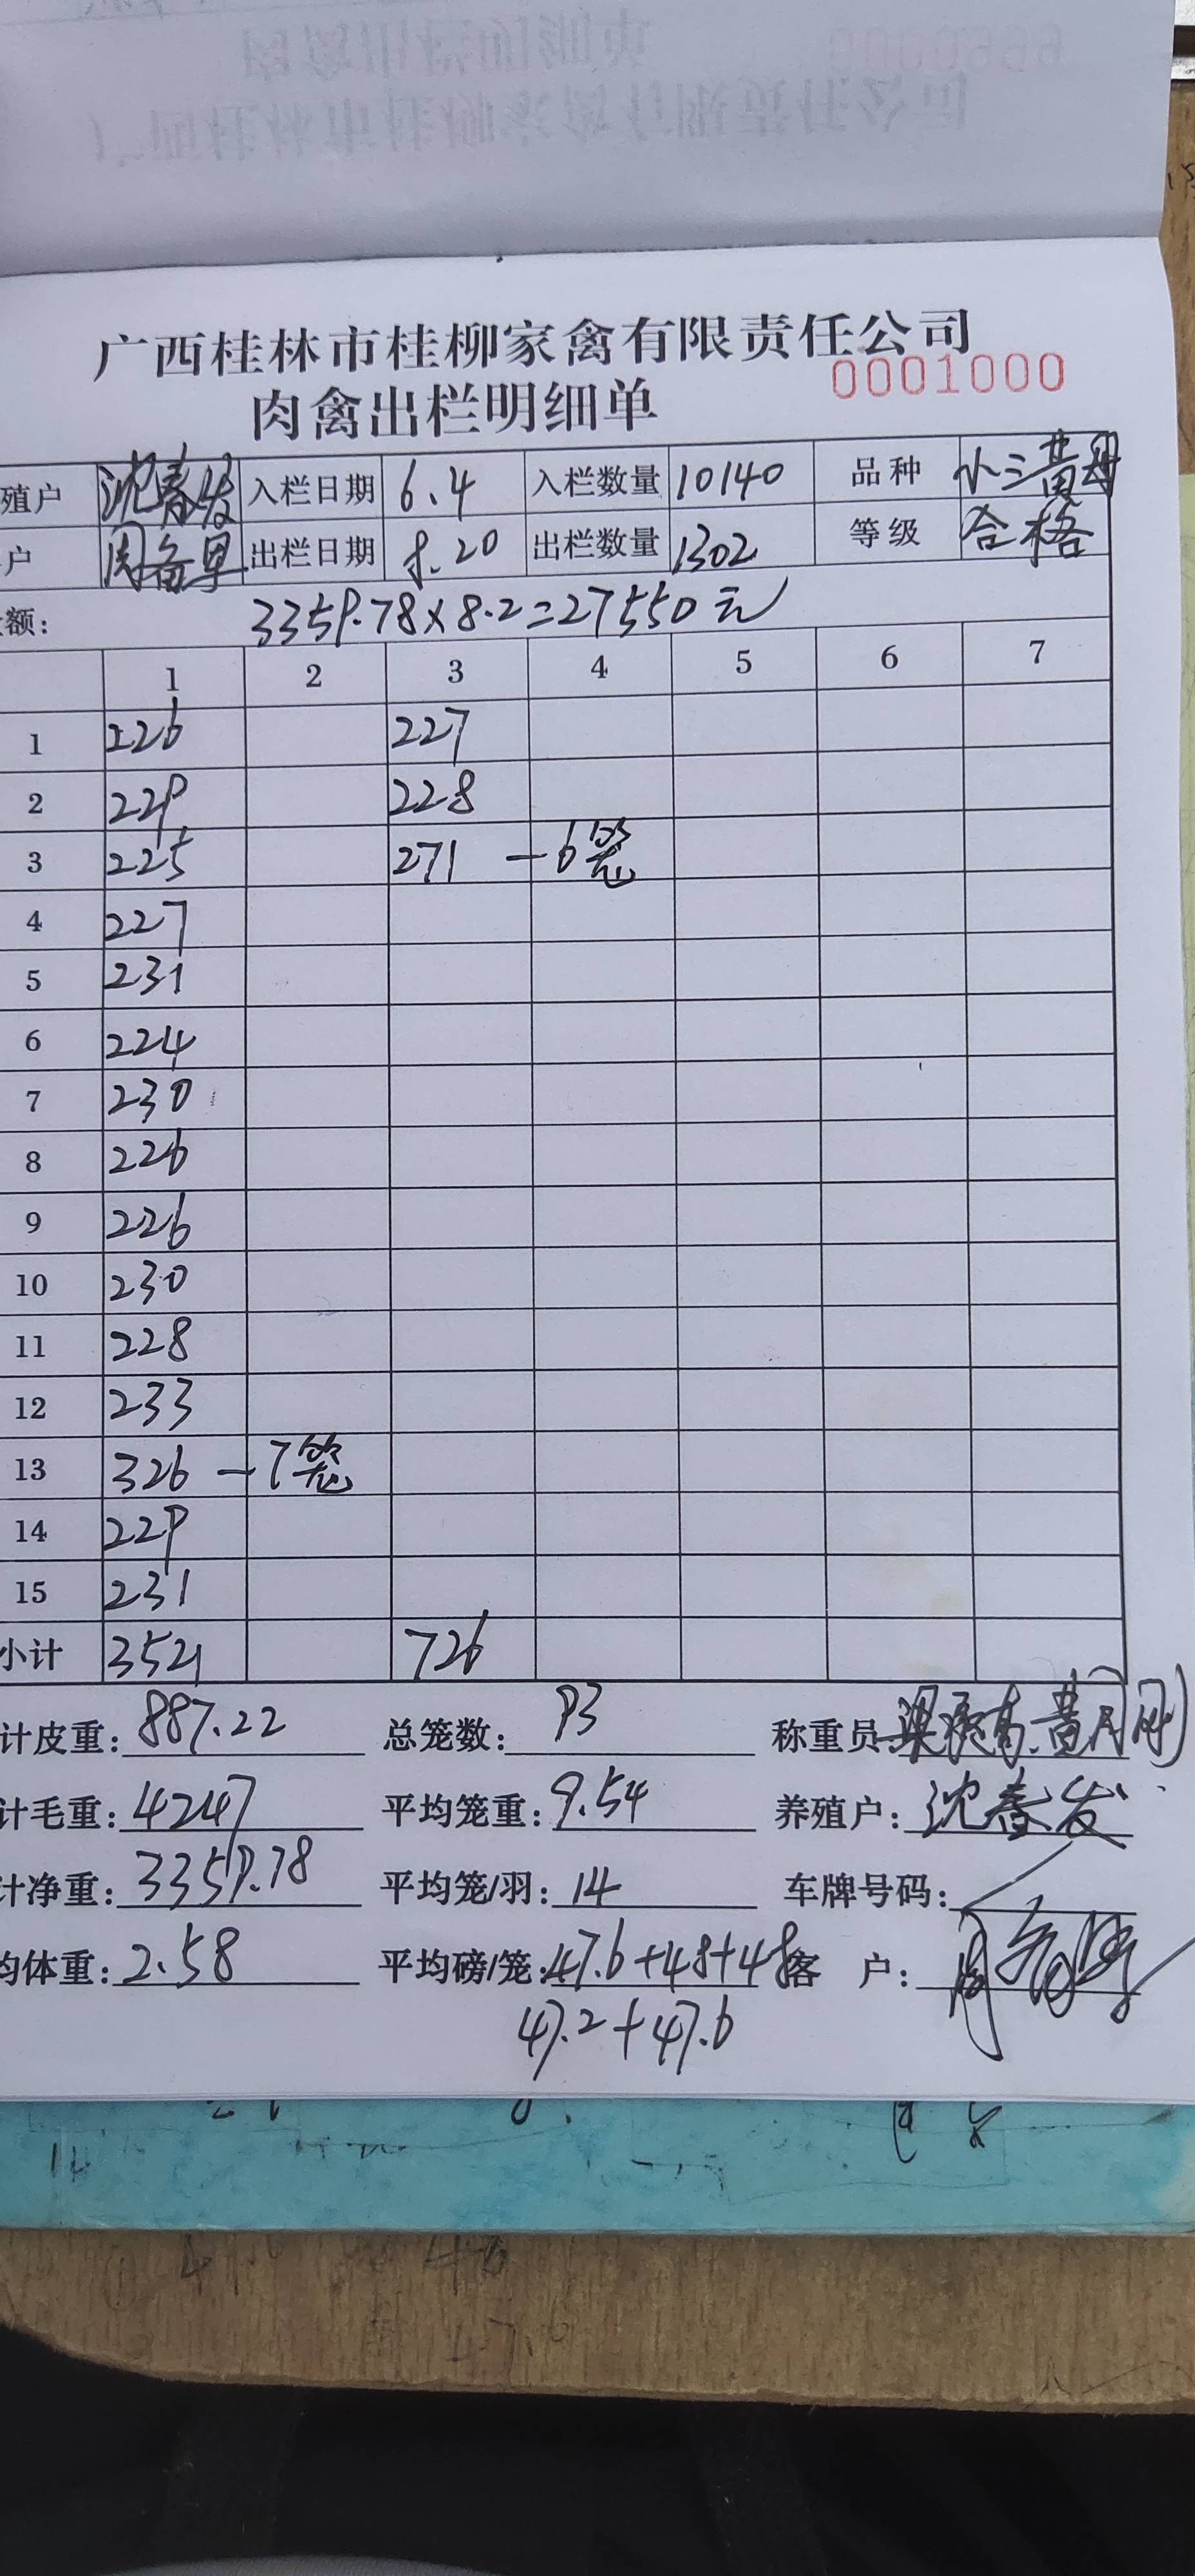 广西桂林市桂柳家禽有限责任公司
肉禽出栏明细单 0001000
殖户 沈春发 入栏日期 6.4 入栏数量 10140 品种 小三黄母
户 出栏日期 8.20 出栏数量 1302 等级 合格
额: 3359.78×8.2=27550元
1 2 3 4 5 6 7
1 226 227
2 229 228
3 225 271 —6笼
4 227
5 231
6 224
7 230
8 226
9 226
10 230
11 228
12 233
13 326 —7笼
14 229
15 231
小计 3521 726
计皮重: 887.22 总笼数: 93 称重员
计毛重: 4247 平均笼重: 9.54 养殖户: 沈春发
计净重: 3359.78 平均笼/羽: 14 车牌号码:
均体重: 2.58 平均磅/笼: 47.6+48+48 客 户:
47.2+47.6